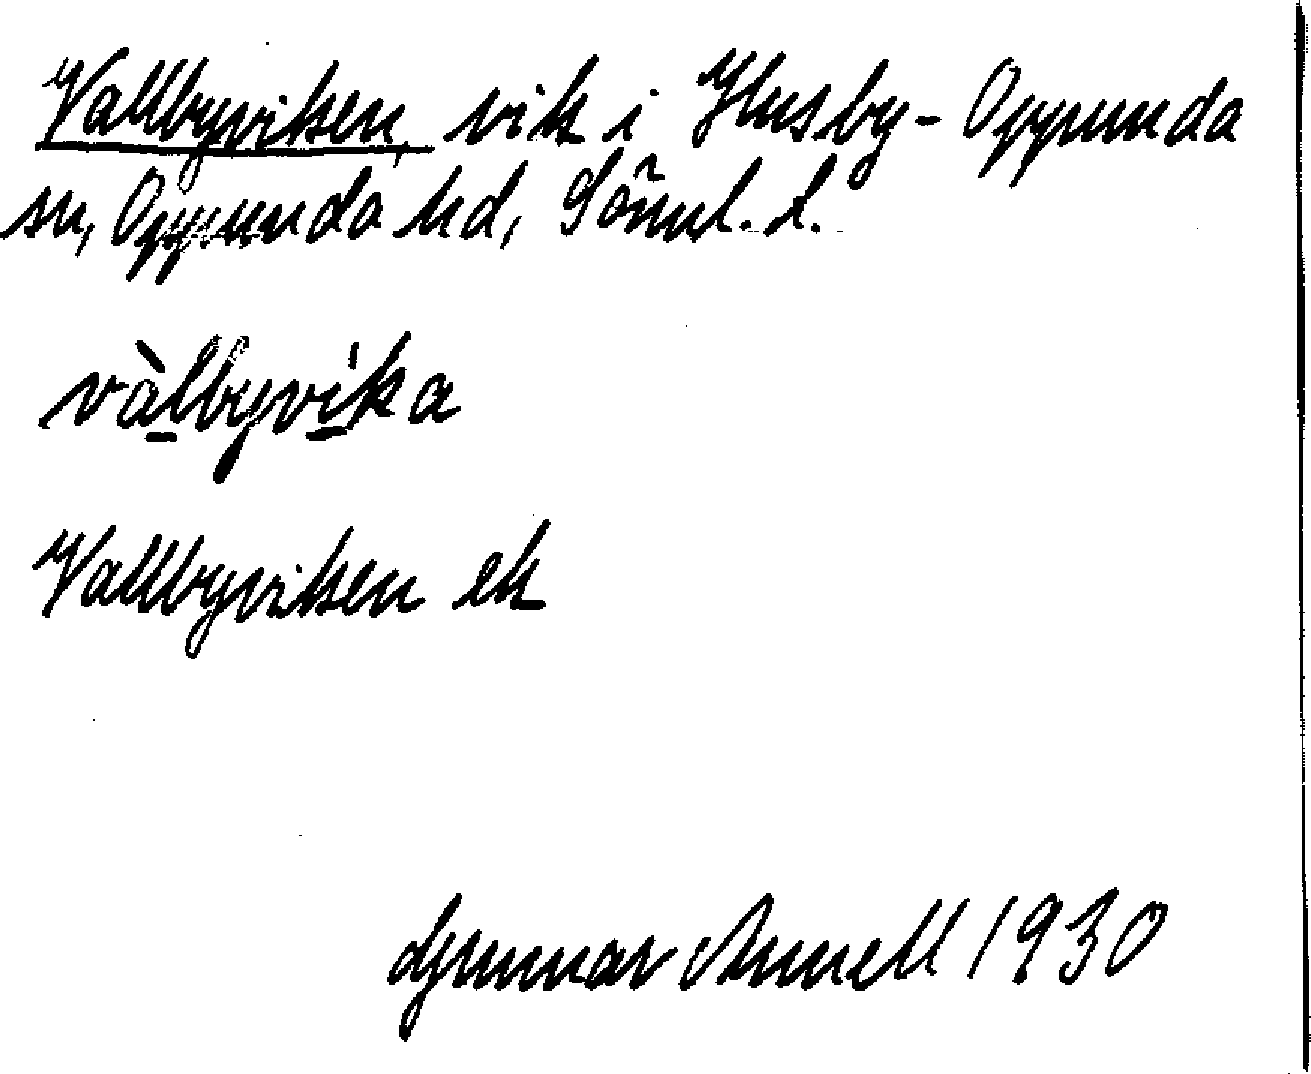 Vallbyviken, vik i Husby-Oppunda
sn, Oppunda hd, Söml. l.
vàlbyvika
Vallbyviken ek
Gunnar Annell 1930